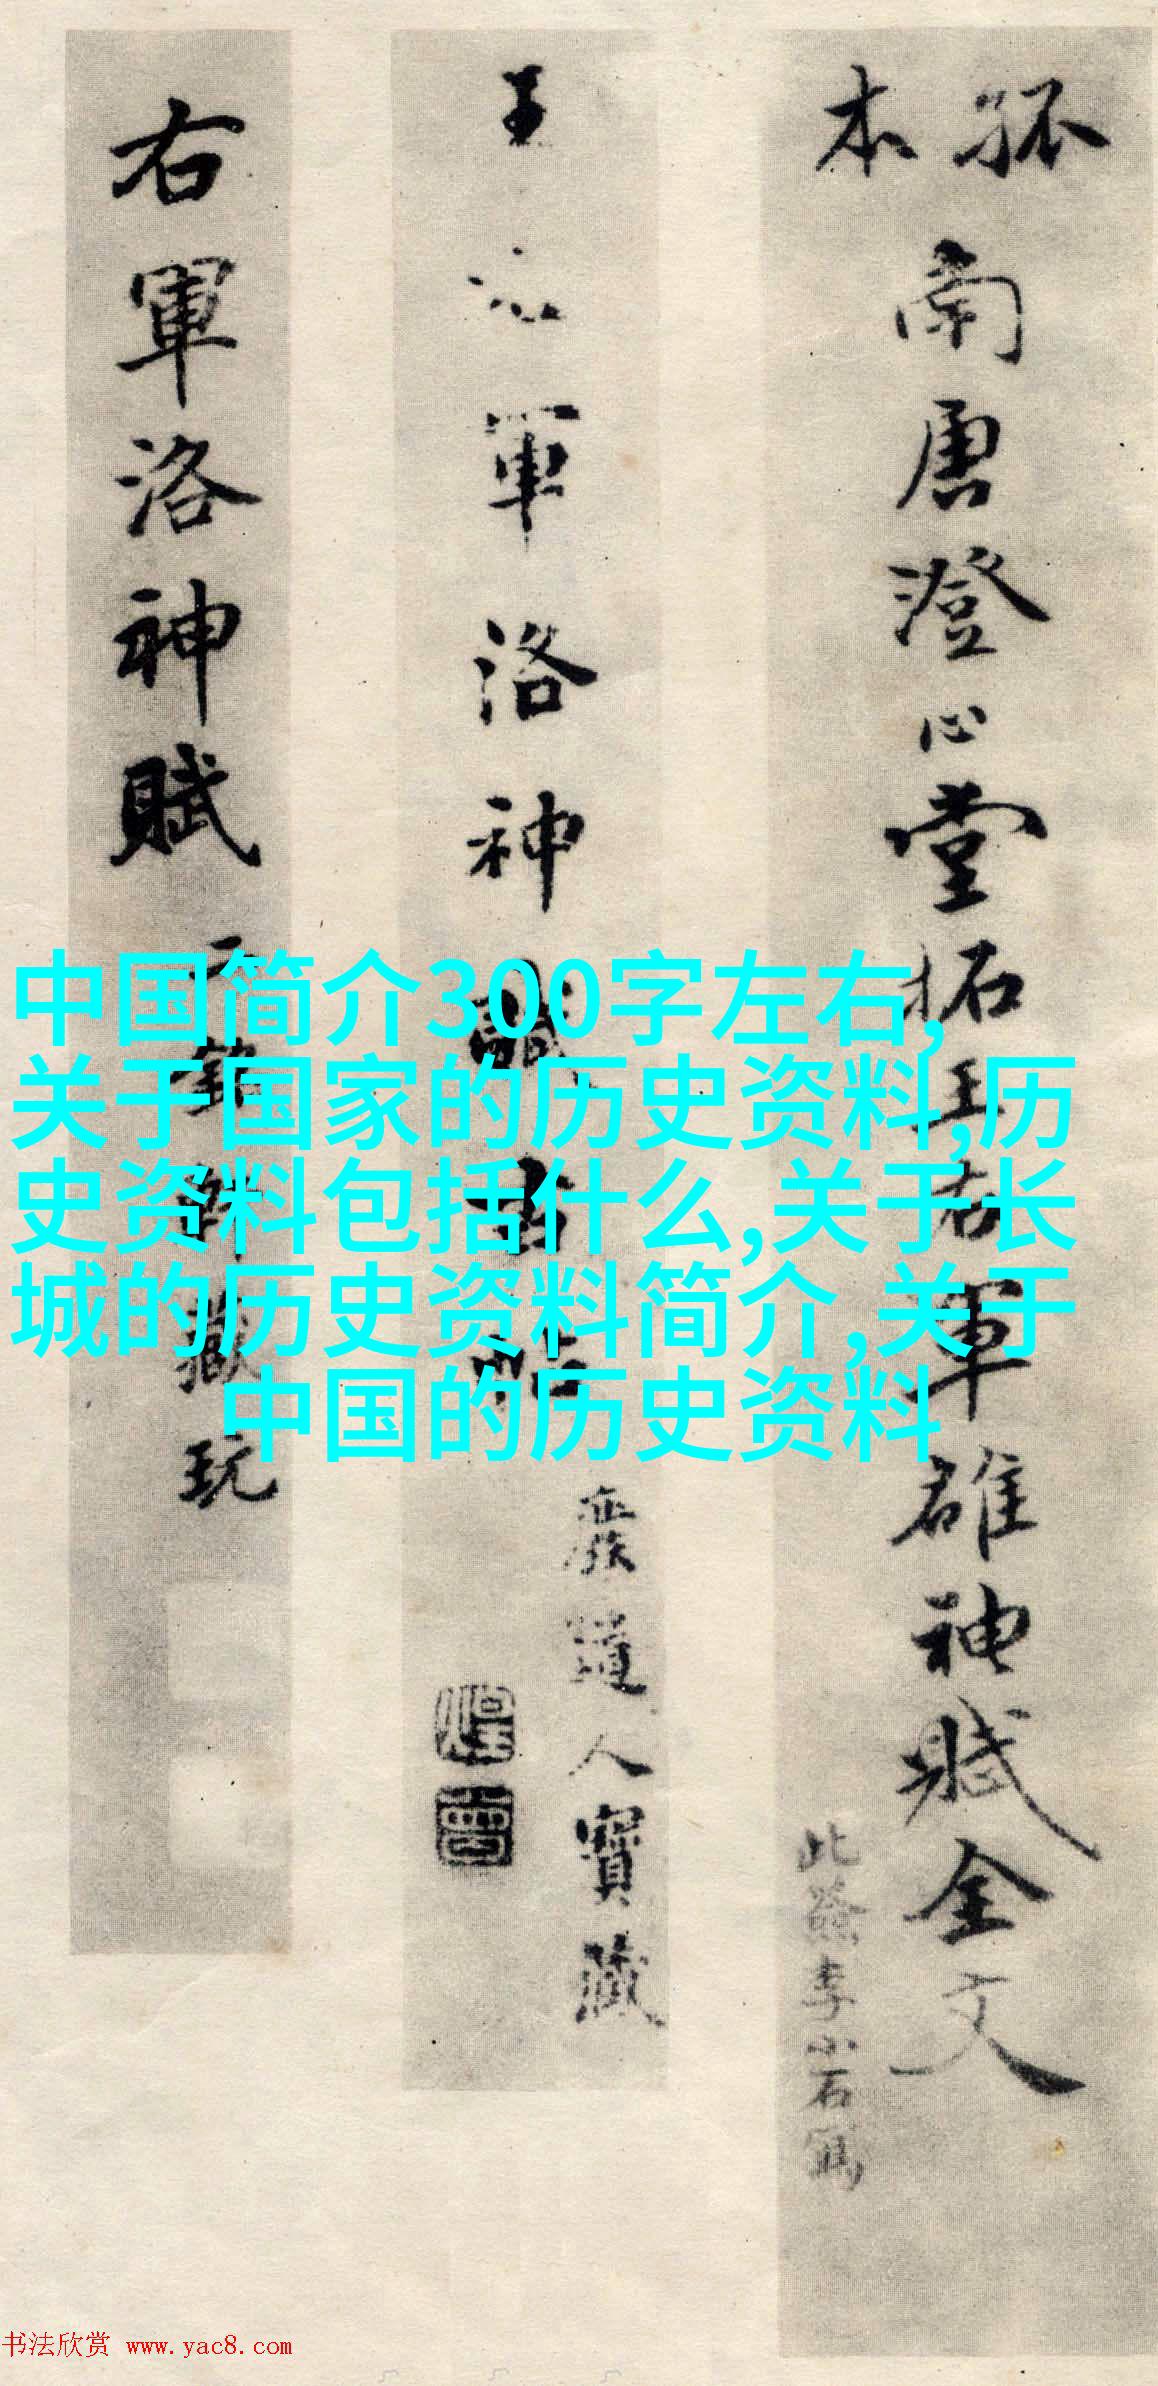 孤本
南唐澄心堂拓王右軍雒神賦全文
此籤李小石寫
王右軍洛神賦
道人寶藏
右軍洛神賦
玩
中国简介300字左右,
关于国家的历史资料,历
史资料包括什么,关于长
城的历史资料简介,关于
中国的历史资料
书法欣赏 www.yac8.com